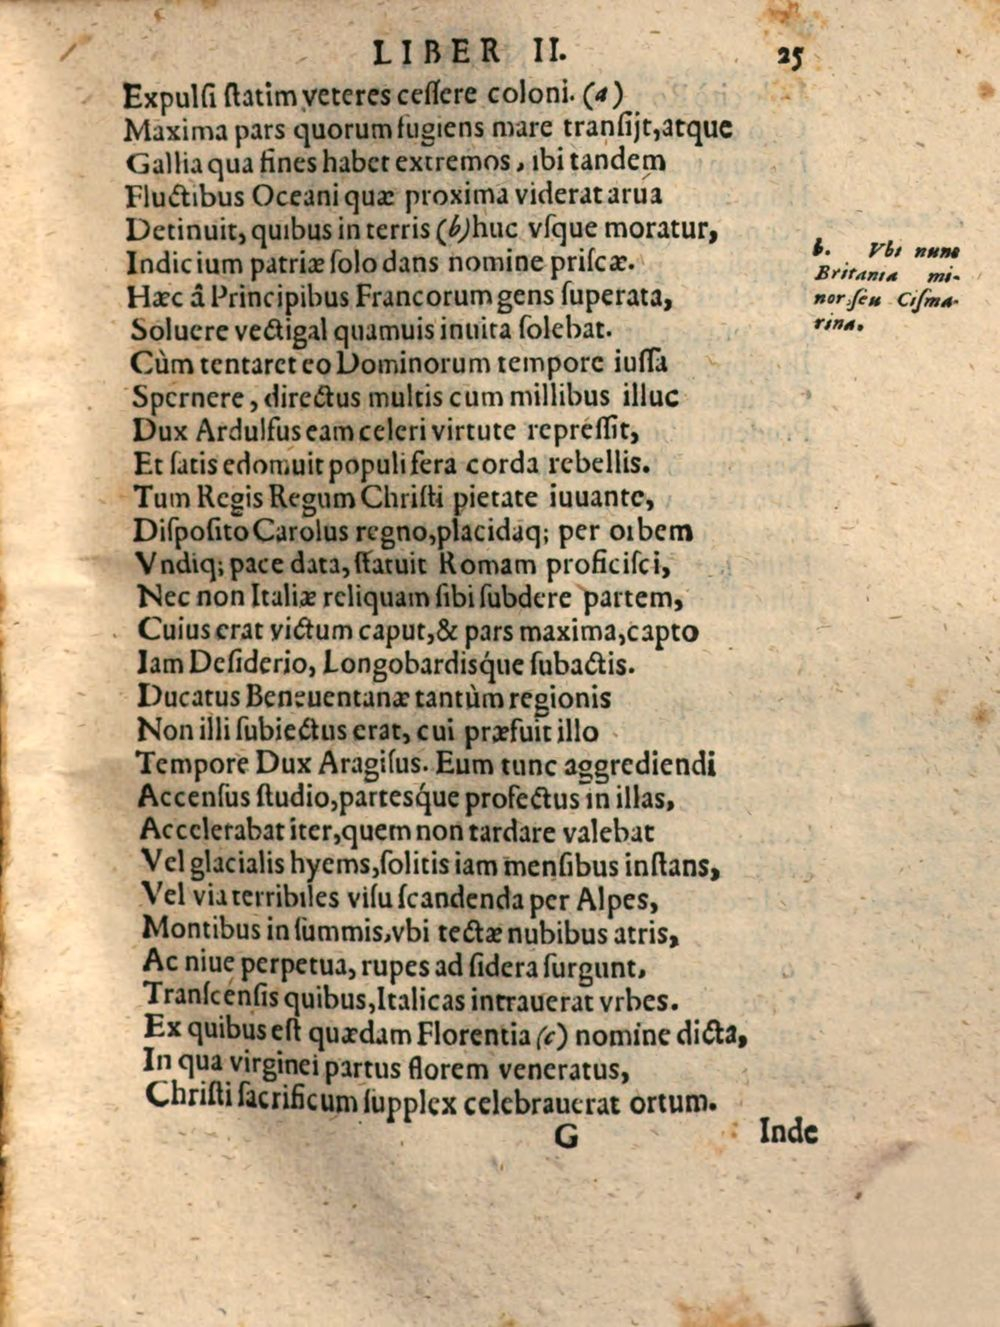 LIBER II. 25
Expulſi ſtatim veteres ceſſere coloni. (a)
Maxima pars quorum fugiens mare tranſijt, atque
Gallia qua fines habet extremos, ibi tandem
Fluctibus Oceani quæ proxima viderat arua
Detinuit, quibus in terris (b) huc vſque moratur,
Indicium patriæ ſolo dans nomine priſcæ.
b. Vbi nunc
Britania mi-
nor ſeu Ciſma-
rina.
Hæc â Principibus Francorum gens ſuperata,
Soluere vectigal quamuis inuita ſolebat.
Cùm tentaret eo Dominorum tempore iuſſa
Spernere, directus multis cum millibus illuc
Dux Ardulfus eam celeri virtute repreſſit,
Et ſatis edomuit populi fera corda rebellis.
Tum Regis Regum Chriſti pietate iuuante,
Diſpoſito Carolus regno, placidaq; per orbem
Vndiq; pace data, ſtatuit Romam proficiſci,
Nec non Italiæ reliquam ſibi ſubdere partem,
Cuius erat victum caput, & pars maxima, capto
Iam Deſiderio, Longobardisq́ue ſubactis.
Ducatus Beneuentanæ tantùm regionis
Non illi ſubiectus erat, cui præfuit illo
Tempore Dux Aragiſus. Eum tunc aggrediendi
Accenſus ſtudio, partesq́ue profectus in illas,
Accelerabat iter, quem non tardare valebat
Vel glacialis hyems, ſolitis iam menſibus inſtans,
Vel via terribiles viſu ſcandenda per Alpes,
Montibus in ſummis, vbi tectæ nubibus atris,
Ac niue perpetua, rupes ad ſidera ſurgunt.
Tranſcenſis quibus, Italicas intrauerat vrbes.
Ex quibus eſt quædam Florentia (c) nomine dicta,
In qua virginei partus florem veneratus,
Chriſti ſacrificum ſupplex celebrauerat ortum.
G Inde